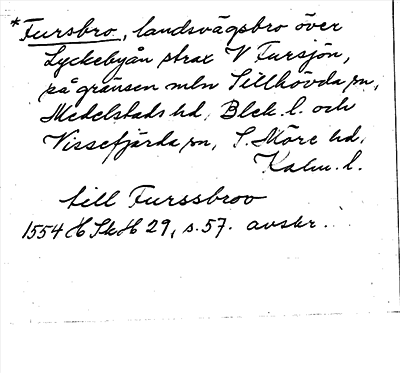 *Fursbro, landsvägsbro över
Lyckebyån strax V Fursjön,
på gränsen mln Sillhövda sn,
Medelstads hd, Blek. l. och
Vissefjärda sn, S. Möre hd,
Kalm. l.
till Furssbroo
1554 H Sk H 29, s. 57. avskr.